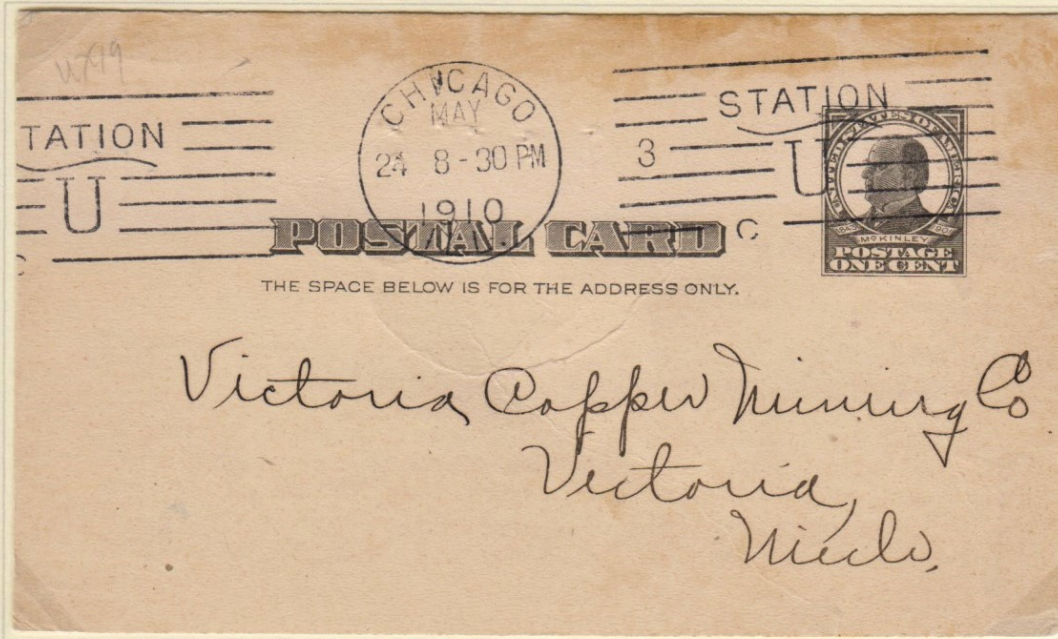 UX19
TATION
U
C
CHICAGO
MAY
24 8-30 PM
1910
ILL.
3
STATION
U
C
UNITED STATES OF AMERICA
1843 McKINLEY 1901
POSTAGE
ONE CENT
POSTAL CARD
THE SPACE BELOW IS FOR THE ADDRESS ONLY.
Victoria Copper Mining Co
Victoria,
Mich.